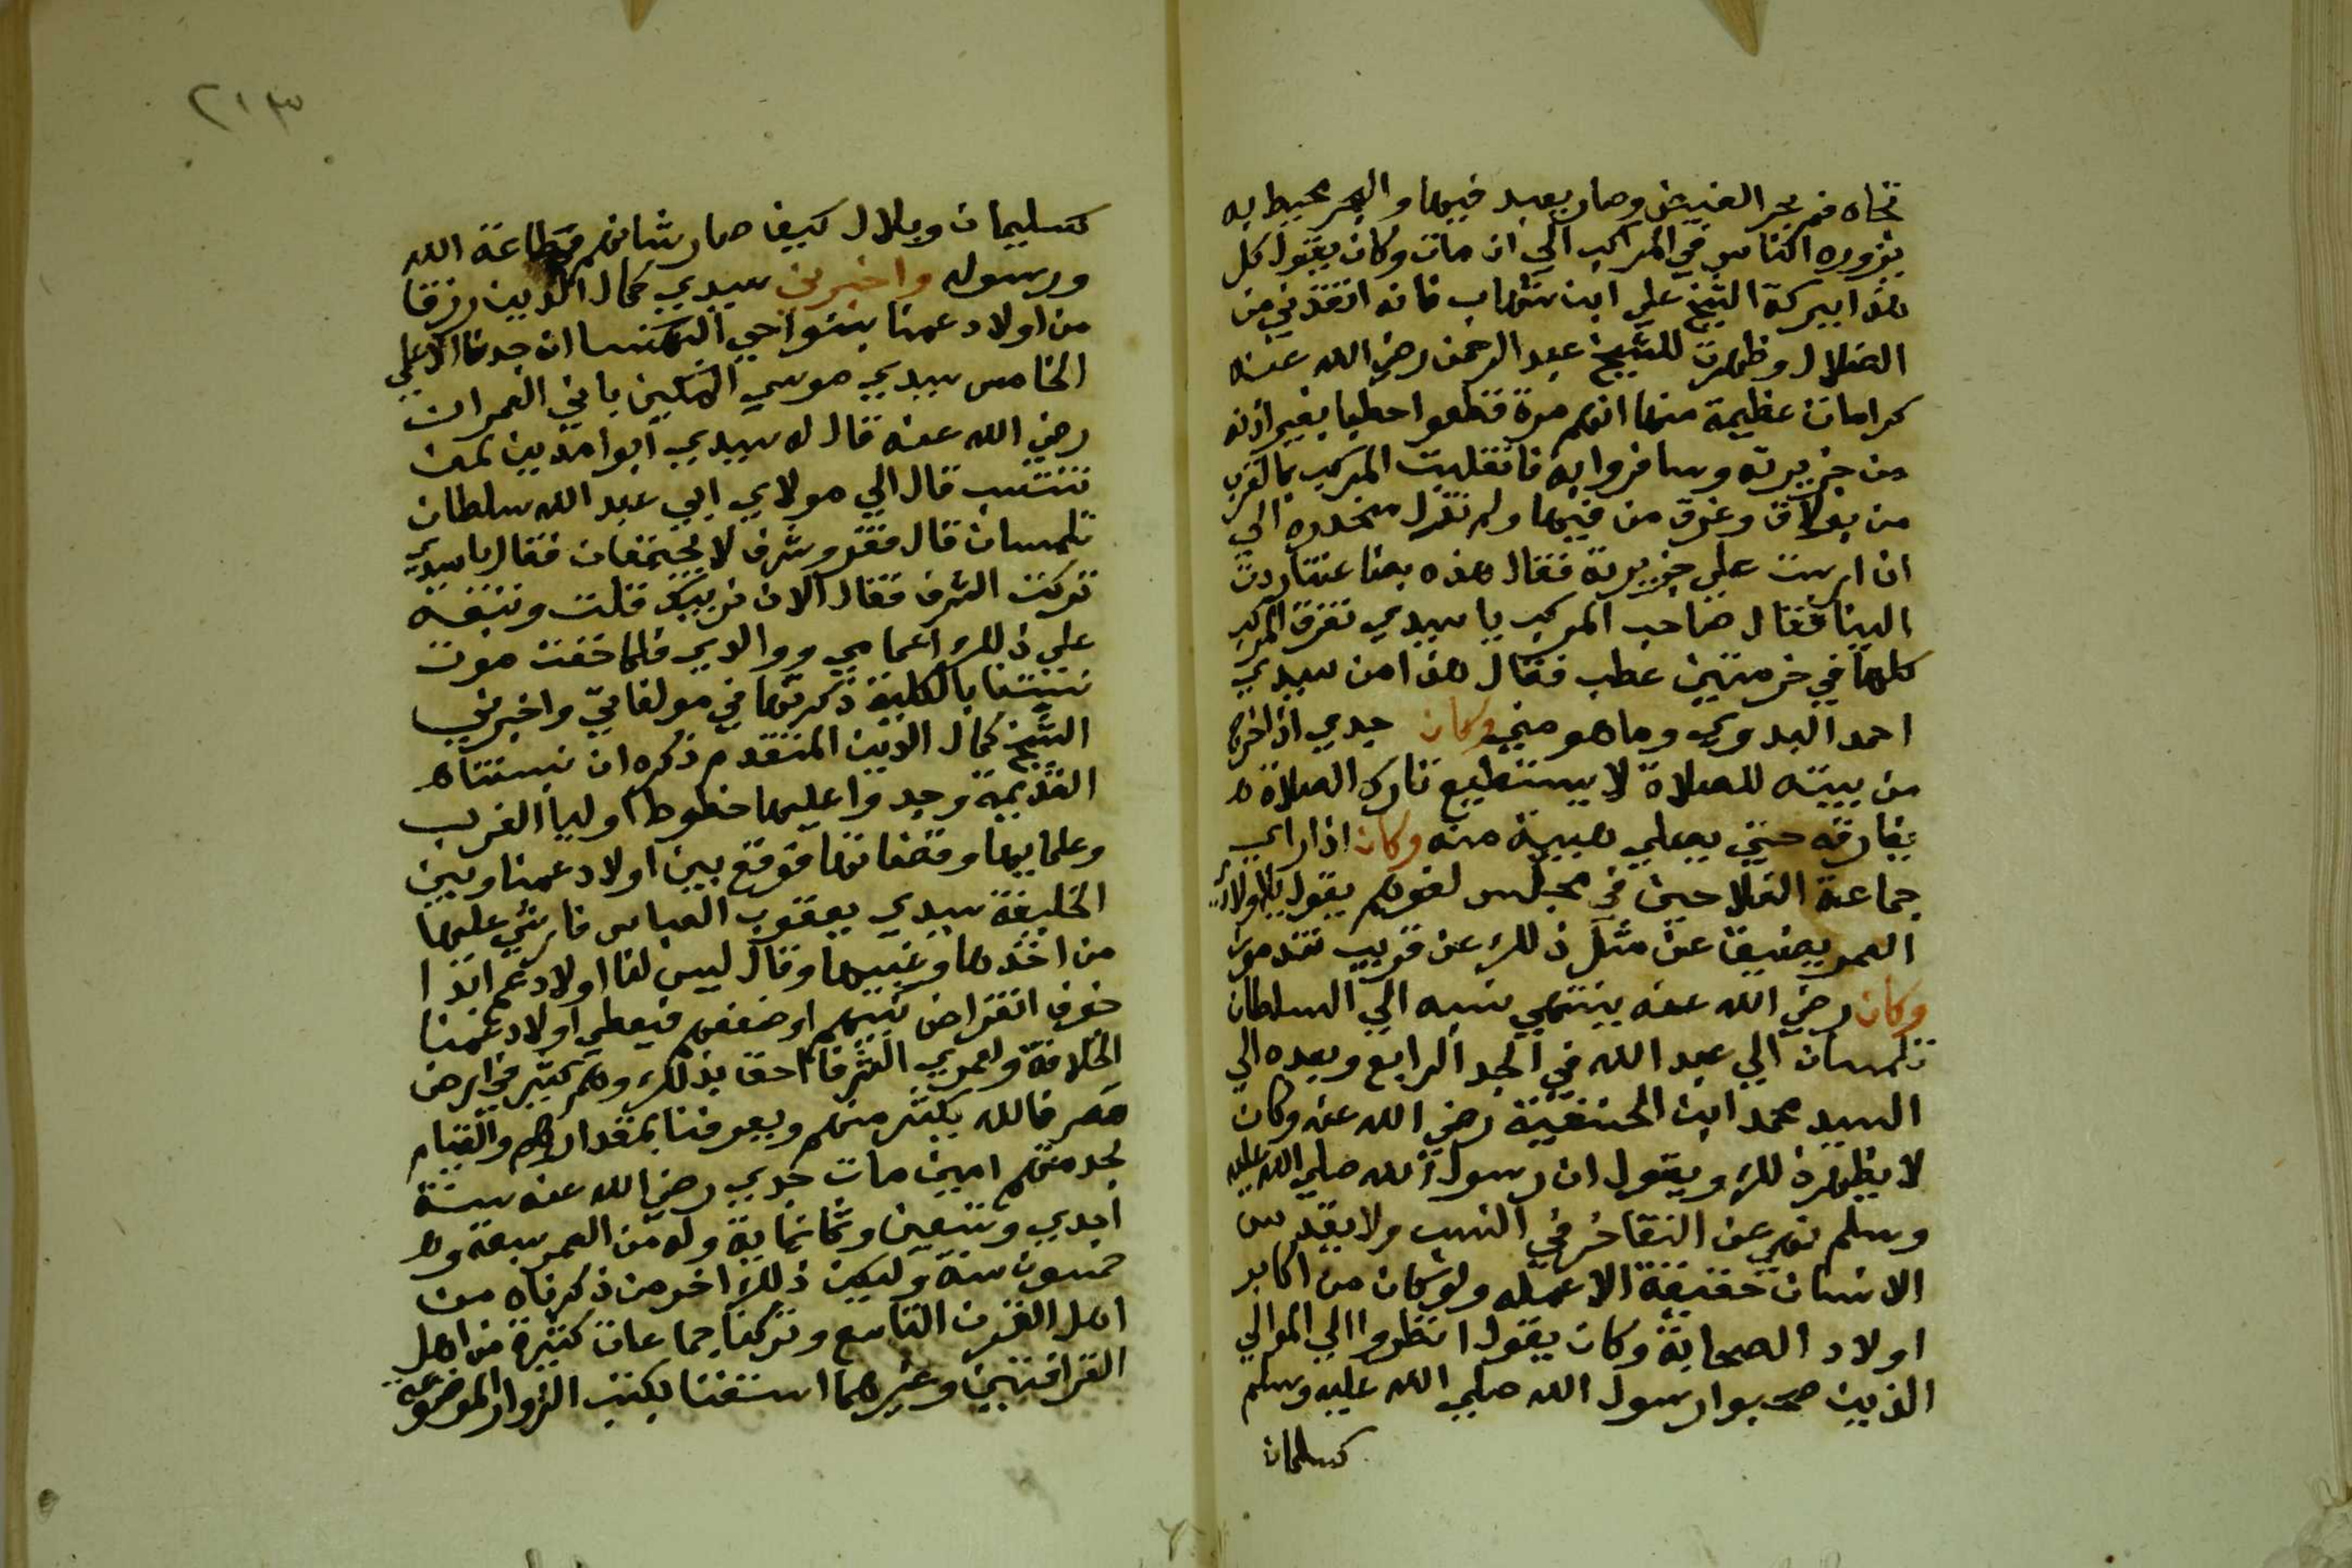 تجاه فم بحر الفيض وصار يعبد فيها والبحر محيط به
يزوره الناس في المراكب الي ان مات وكان يقول كل
هذا ببركة الشيخ علي ابن شهاب فانه انقذني من
الضلال وظهرت للشيخ عبد الرحمن رضي الله عنه
كرامات عظيمة منها انهم مرة قطعوا حطبا بغير اذنه
من جزيرته وسافروا به فانقلبت المركب بالقرب
من بولاق وغرق من فيها ولم تزل منحدره الي
ان ارست علي جزيرته فقال هذه بضاعتنا ردت
الينا فقال صاحب المركب يا سيدي تغرق المركب
كلها في حزمتين حطب فقال هذا من سيدي
احمد البدوي وما هو مني وكان جدي اذا خرج
من بيته للصلاة لا يستطيع تارك الصلاة
يفارقه حتي يصلي هيبة منه وكان اذا راي
جماعة الفلاحين في مجلس لغوهم يقول يا اولاد
العمر يضيق عن مثل ذلك عن قريب تندموا
وكان رضي الله عنه ينتهي نسبه الي السلطان
تلمسان ابي عبد الله في الجد الرابع وبعده الي
السيد محمد ابن الحنفية رضي الله عنه وكان
لا يظهر ذلك ويقول ان رسول الله صلي الله عليه
وسلم نهي عن التفاخر في النسب ولا يقدس
الانسان حقيقة الا عمله ولو كان من اكابر
اولاد الصحابة وكان يقول انظروا الي الموالي
الذين صحبوا رسول الله صلي الله عليه وسلم
كسلمان
٢١٣
كسليمان وبلال كيف صار شانهم في طاعة الله
ورسوله واخبرني سيدي كمال الدين رزقا
من اولاد عمنا بنواحي البهنسا ان جدنا الاعلي
الخامس سيدي موسي المكني بابي العمران
رضي الله عنه قال له سيدي ابوا مدين لمن
تنتسب قال الي مولاي ابي عبد الله سلطان
تلمسان قال فقر وشرف لا يجتمعان فقال يا سيدي
تركت الشرف فقال الان نربيك قلت وتبعه
علي ذلك اعمامي ووالدي فلما خفت موت
نسبتنا بالكلية ذكرتها في مولفاتي واخبرني
الشيخ كمال الدين المتقدم ذكره ان نسبتنا
القديمة وجدوا عليها خطوط اوليا الغرب
وعلمايها وقضاتها فوقع بين اولاد عمنا وبين
الخليفة سيدي يعقوب العباس فارشي عليها
من اخذها وغيبها وقال ليس لنا اولاد عم ابدا
خوف انقراض نسبهم او ضعفهم فيعطي اولاد عمنا
الخلافة ولعمري الشرفا احق بذلك وهم كثير في ارض
مصر فالله يكثر منهم ويعرفنا بمقدارهم والقيام
بخدمتهم امين مات جدي رضي الله عنه سنة
احدي وتسعين وثمانماية وله من العمر سبعة و
خمسون سنة وليكن ذلك اخر من ذكرناه من
اهل القرن التاسع وتركنا جماعات كثيرة من اهل
القرافتين وغيرهما استغنا بكتب الزوار الموضوعة